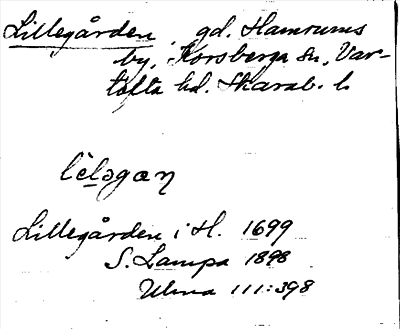 Lillegården, gd. Hamrums
by, Korsberga sn, Var-
tofta hd. Skarab. l.
Lillegården i H. 1699
S. Lampa 1898
Ulma 111:398